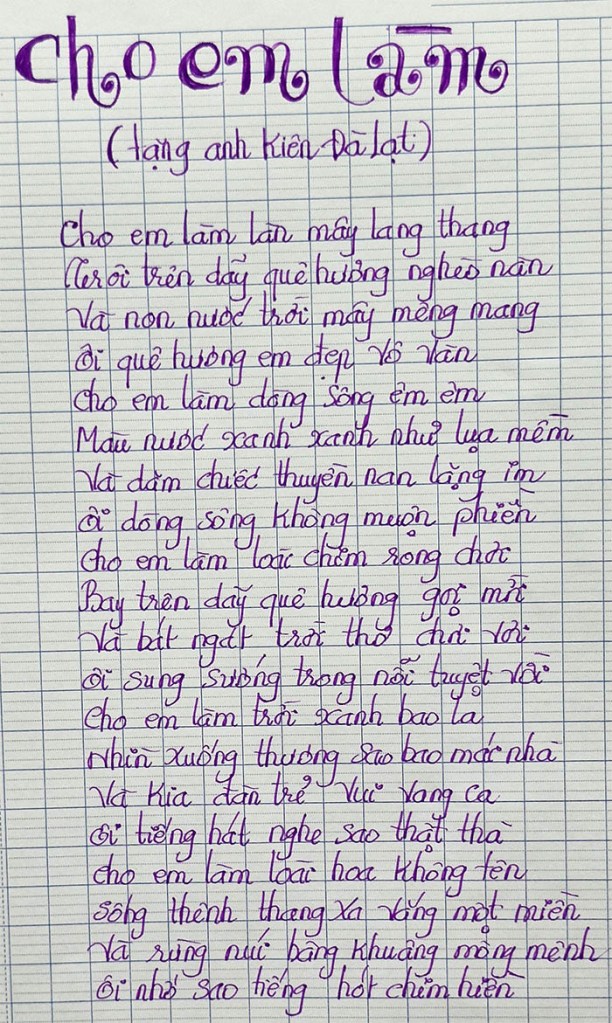 Cho em làm
(tặng anh Kiên Đà lạt)
Cho em làm làn mây lang thang
Trôi trên dãy quê hương nghèo nàn
Và non nước trời mây mênh mang
Ôi quê hương em đẹp vô vàn
Cho em làm dòng sông êm êm
Màu nước xanh xanh như lụa mềm
Và dăm chiếc thuyền nan lặng im
Ôi dòng sông không muộn phiền
Cho em làm loài chim rong chơi
Bay trên dãy quê hương gọi mời
Và bát ngát trời thơ chơi vơi
Ôi sung sướng trong nỗi tuyệt vời
Cho em làm trời xanh bao la
Nhìn xuống thương sao bao mái nhà
Và kia đàn trẻ vui vang ca
Ôi tiếng hát nghe sao thật thà
Cho em làm loài hoa không tên
Sống thênh thang xa vắng một miền
Và rừng núi bâng khuâng mông mênh
Ôi nhớ sao tiếng hót chim hiền